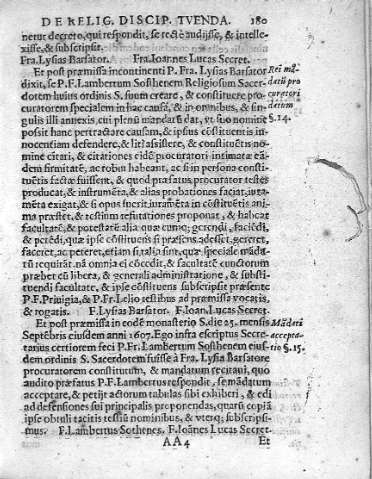 DE RELIG. DISCIP. TVENDA. 180
netur decreto, qui respondit, se rectè audijsse, & intelle-
xisse, & subscripsit.
Fra. Lysias Barsator. Fra. Ioannes Lucas Secret.
Et post præmissa incontinenti P. Fra. Lysias Barsator
dixit, se P. F. Lambertum Sosthenem Religiosum Sacer-
dotem huius ordinis S. suum creare, & constituere pro-
curatorem specialem in hac causa, & in omnibus, & sin-
gulis illi annexis, cui plenũ mandatũ dat, vt suo nomine
possit hanc pertractare causam, & ipsius cõstituentis in-
nocentiam defendere, & liti assistere, & constituẽtis no-
mine citari, & citationes eidẽ procuratori intimatæ eã-
dem firmitatẽ, ac robur habeant, ac si in persona consti-
tuẽtis factæ fuissent, & quod præfatus procurator testes
producat, & instrumẽta, & alias probationes faciat, iura-
mẽta exigat, & si opus fuerit, iuramẽta in cõstituẽtis ani-
ma præstet, & testium refutationes proponat, & habeat
facultatẽ, & potestatẽ alia quæcumq; gerendi, faciẽdi,
& petẽdi, quæ ipse cõstituens si præsens adesset, gereret,
faceret, ac peteret, etiam si talia sint, quæ speciale mãda-
tũ requirãt, nã omnia ei cõcedit, & facultatẽ eundem
præbet cũ libera, & generali administratione, & substi-
tuendi facultate, & ipse cõstituens subscripsit præsente
P. F. Priuigia, & P. Fr. Lelio testibus ad præmissa vocatis,
& rogatis. F. Lysias Barsator. F. Ioan. Lucas Secret.
Et post præmissa in eodẽ monasterio S. die 25. mensis
Septẽbris eiusdem anni 1607. Ego infra scriptus Secre-
tarius certiorem feci P. Fr. Lambertum Sosthenem eius-
dem ordinis S. Sacerdotem fuisse à Fra. Lysia Barsatore
procuratorem constitutum, & mandatum recitaui, quo
audito præfatus P. F. Lambertus respondit, se mãdatum
acceptare, & petijt actorum tabulas sibi exhiberi, & edi
ad defensiones sui principalis proponendas, quarũ copiã
ipse obtuli tacitis testiũ nominibus, & vterq; subscripsi-
mus. F. Lambertus Sothenes. F. Ioãnes Lucas Secret.
AA4 Et
Rei mã-
datũ pro
curatori
datum
§. 14.
Mãdati
accepta-
tio §. 15.